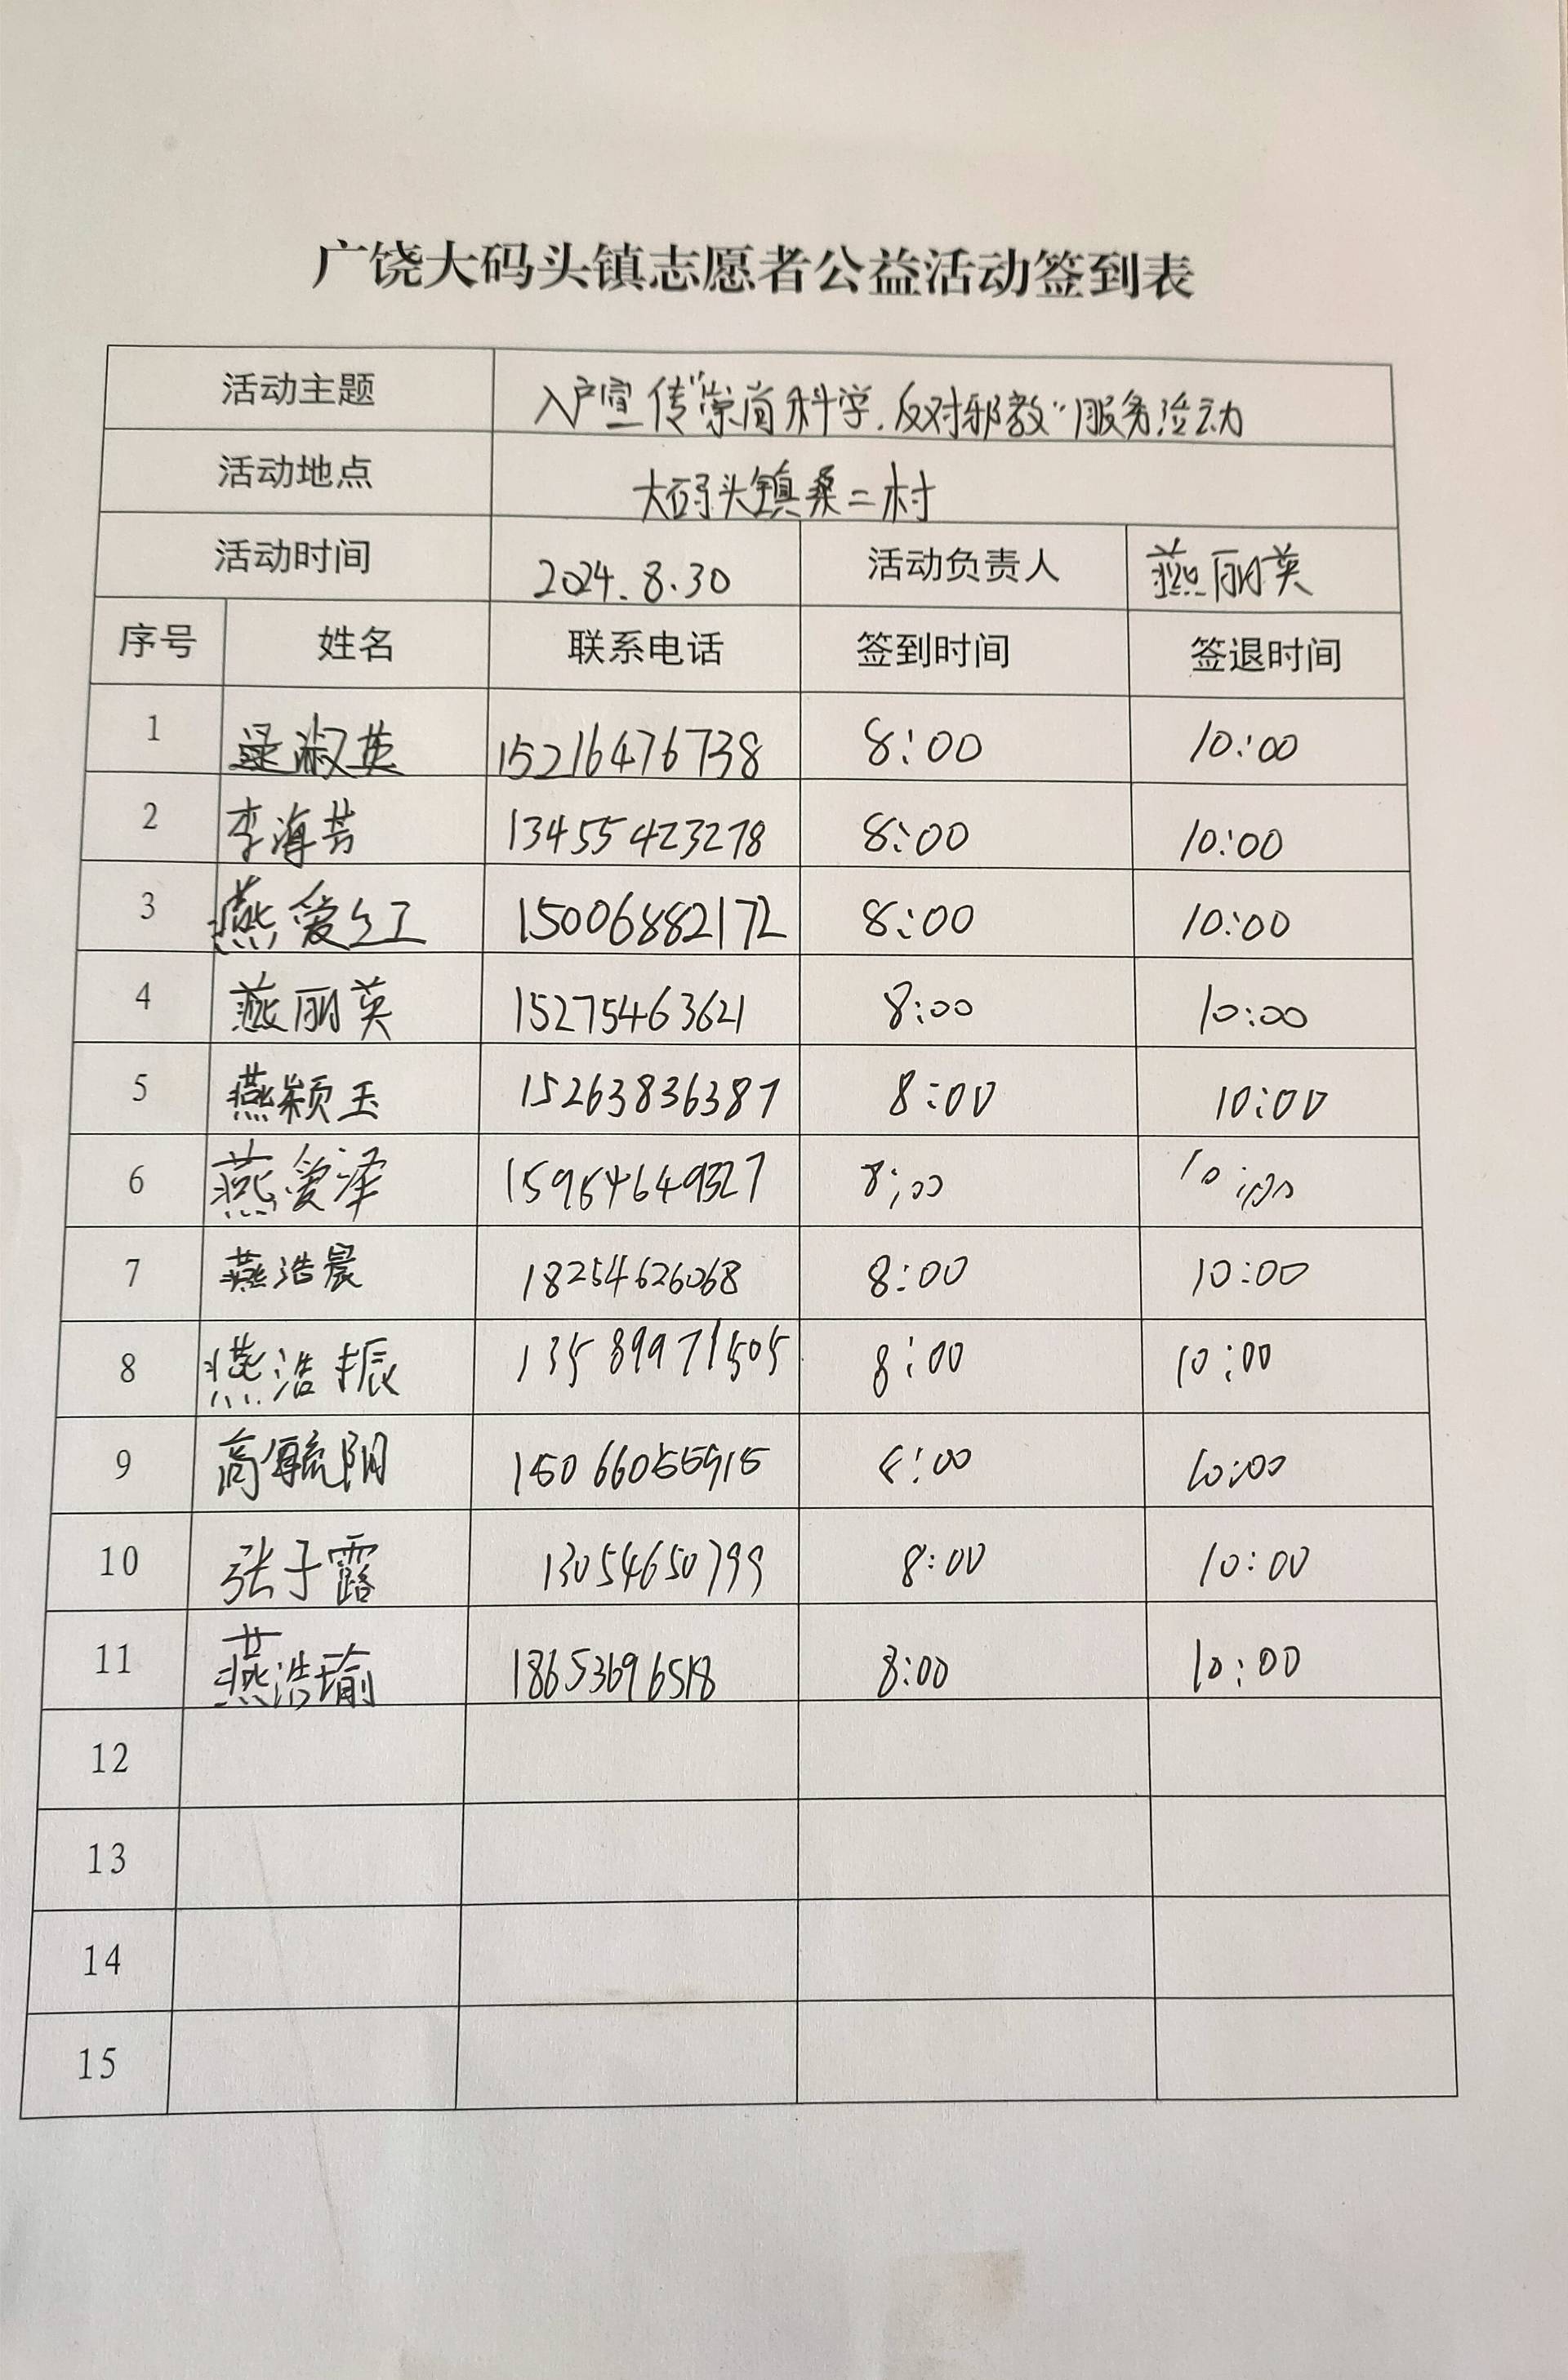 广饶大码头镇志愿者公益活动签到表
活动主题 入户宣传“崇尚科学.反对邪教”服务活动
活动地点 大码头镇桑二村
活动时间 2024.8.30 活动负责人 燕丽英
序号 姓名 联系电话 签到时间 签退时间
1 淑英 15216476738 8:00 10:00
2 李海芳 13455423278 8:00 10:00
3 燕爱红 15006882172 8:00 10:00
4 燕丽英 15275463621 8:00 10:00
5 燕颖玉 15263836387 8:00 10:00
6 燕爱泽 15964649327 8:00 10:00
7 燕浩晨 18254626068 8:00 10:00
8 燕浩振 13589971505 8:00 10:00
9 高毓阳 15066055915 8:00 10:00
10 张于露 13054650799 8:00 10:00
11 燕浩瑜 18653696518 8:00 10:00
12
13
14
15